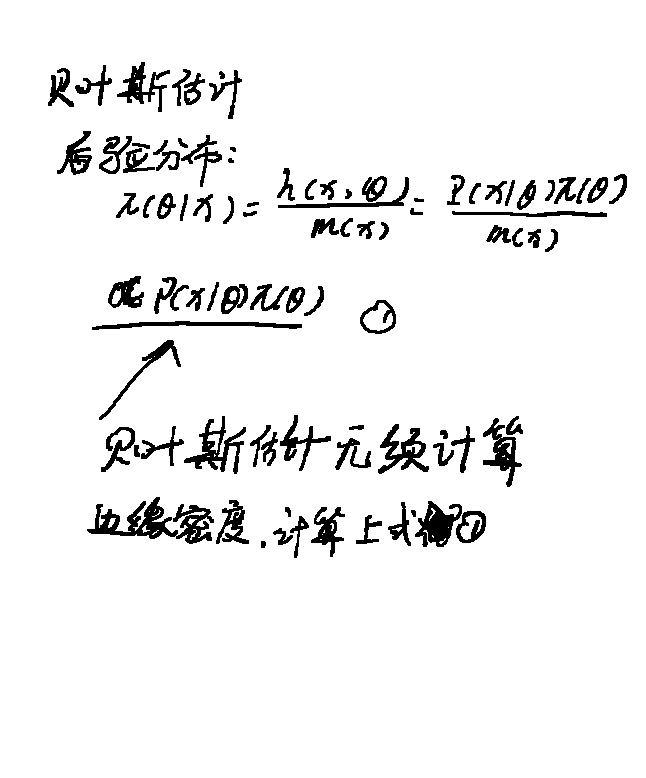 贝叶斯估计
后验分布:
π(θ|x) = h(x,θ)/m(x) = P(x|θ)π(θ)/m(x)
P(x|θ)π(θ) ①
贝叶斯估计无须计算
边缘密度,计算上式①